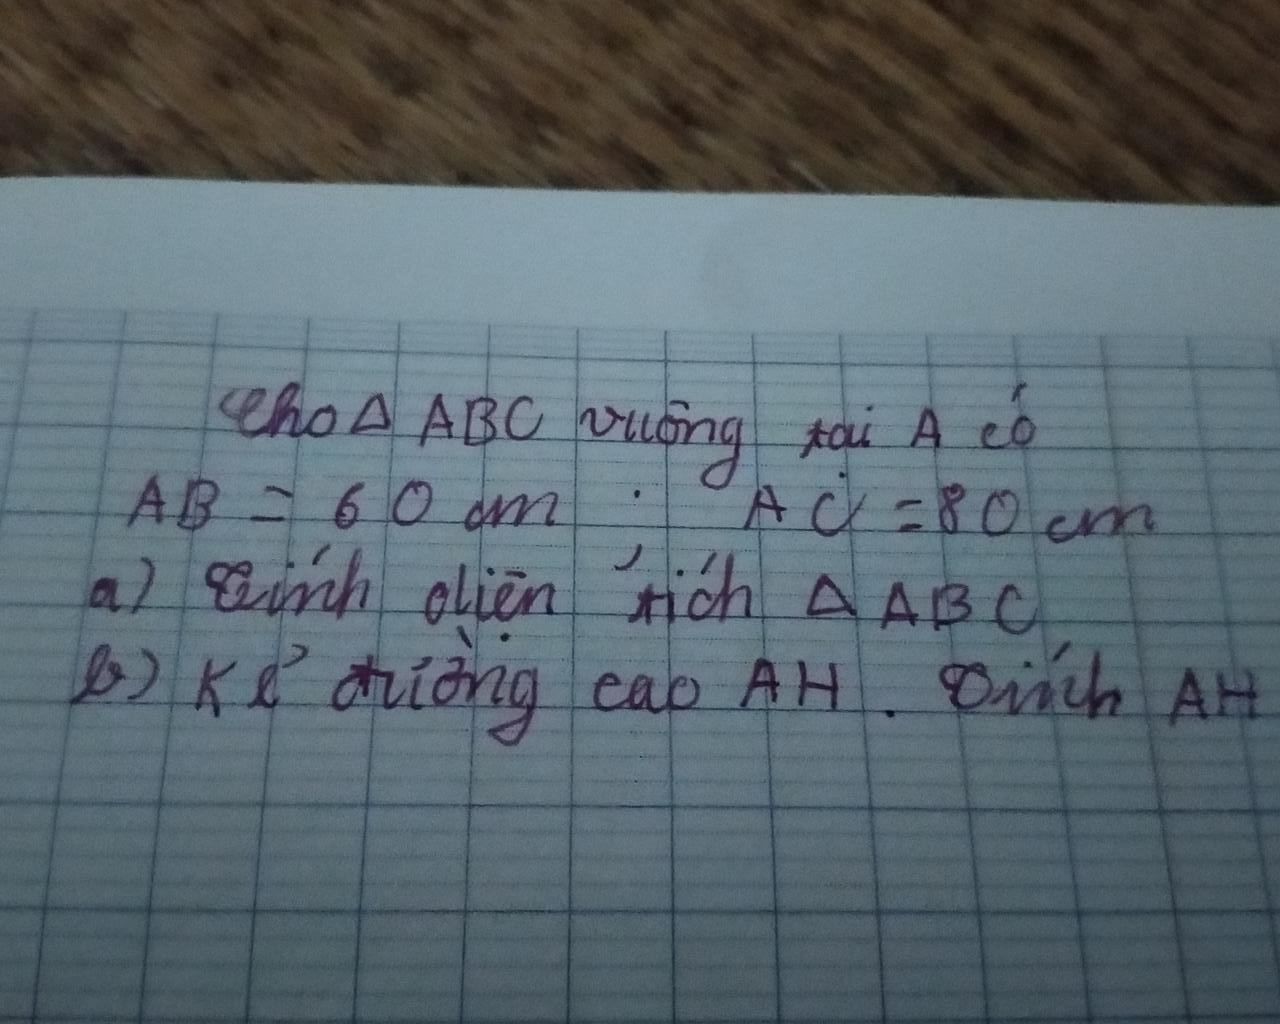 Cho Δ ABC vuông tại A có
AB = 60 cm . AC = 80 cm
a) Tính diện tích Δ ABC
b) Kẻ đường cao AH . Tính AH